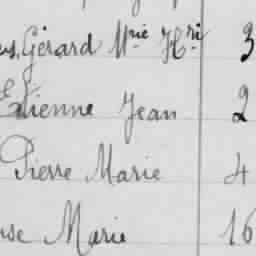 Gérard Mrie Hri 3
Etienne Jean 2
Pierre Marie 4
Marie 16